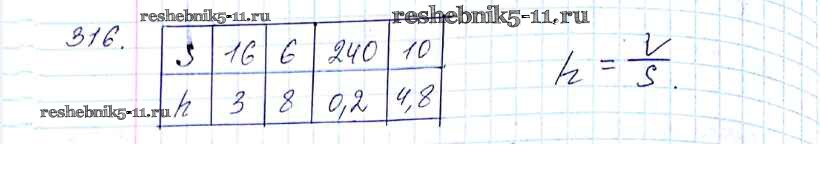 reshebnik5-11.ru
reshebnik5-11.ru
316.
S 16 6 240 10
h 3 8 0,2 4,8
h = V/S.
reshebnik5-11.ru